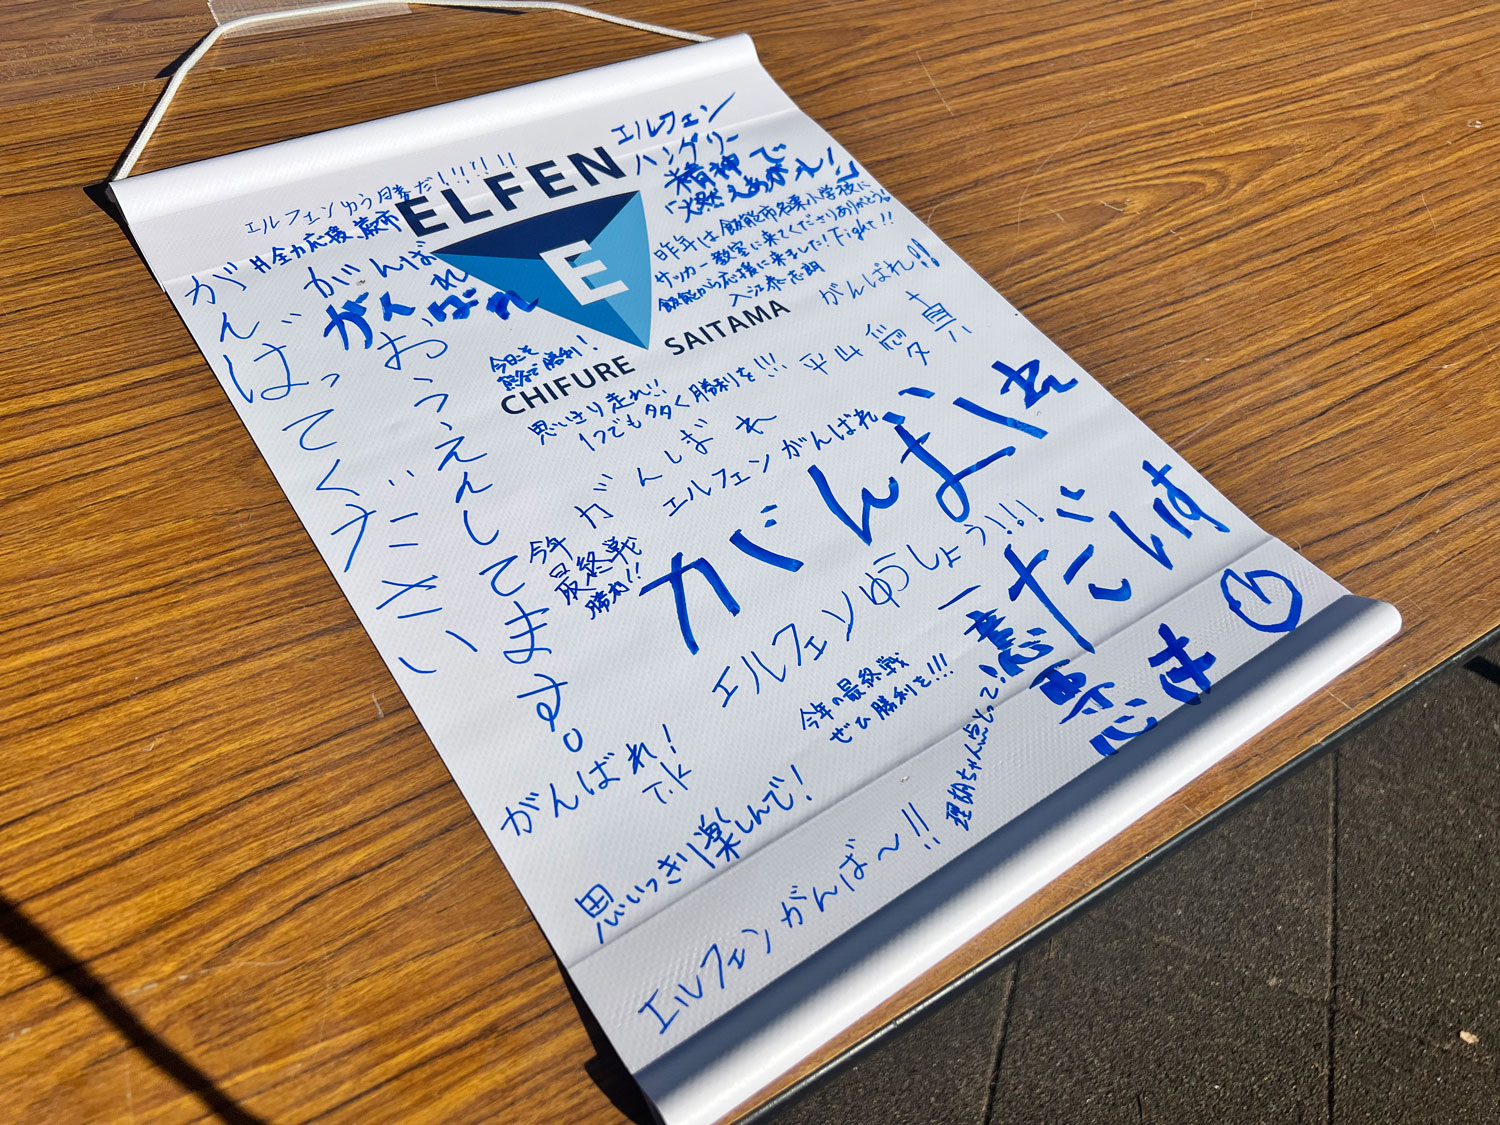 エルフェン
ハングリー
精神で
燃えあがえ!!
エルフェンゆう勝だ!!!!!!
ELFEN
#全力応援 蕨市
昨年は飯能市名栗小学校に
サッカー教室に来てくださりありがとう!
飯能から応援に来ました!Fight!!
入江泰志朗
E
がんばってください
がんばれ
おうえんしてます。
がんばれ
がんばれ!!
CHIFURE SAITAMA
今日こそ
熊谷で勝利!
平山愛真
思いきり走れ!!
1つでも多く勝利を!!!
がんばれ
エルフェンがんばれ
がんばれ
今年
最終戦
勝て!!
エルフェンゆうしょう!!!
一意専心
だいすき
今年の最終戦
ぜひ勝利を!!!
理胡ちゃん点とって!
がんばれ!
T.K
思いっきり楽しんで!
エルフェンがんば〜!!